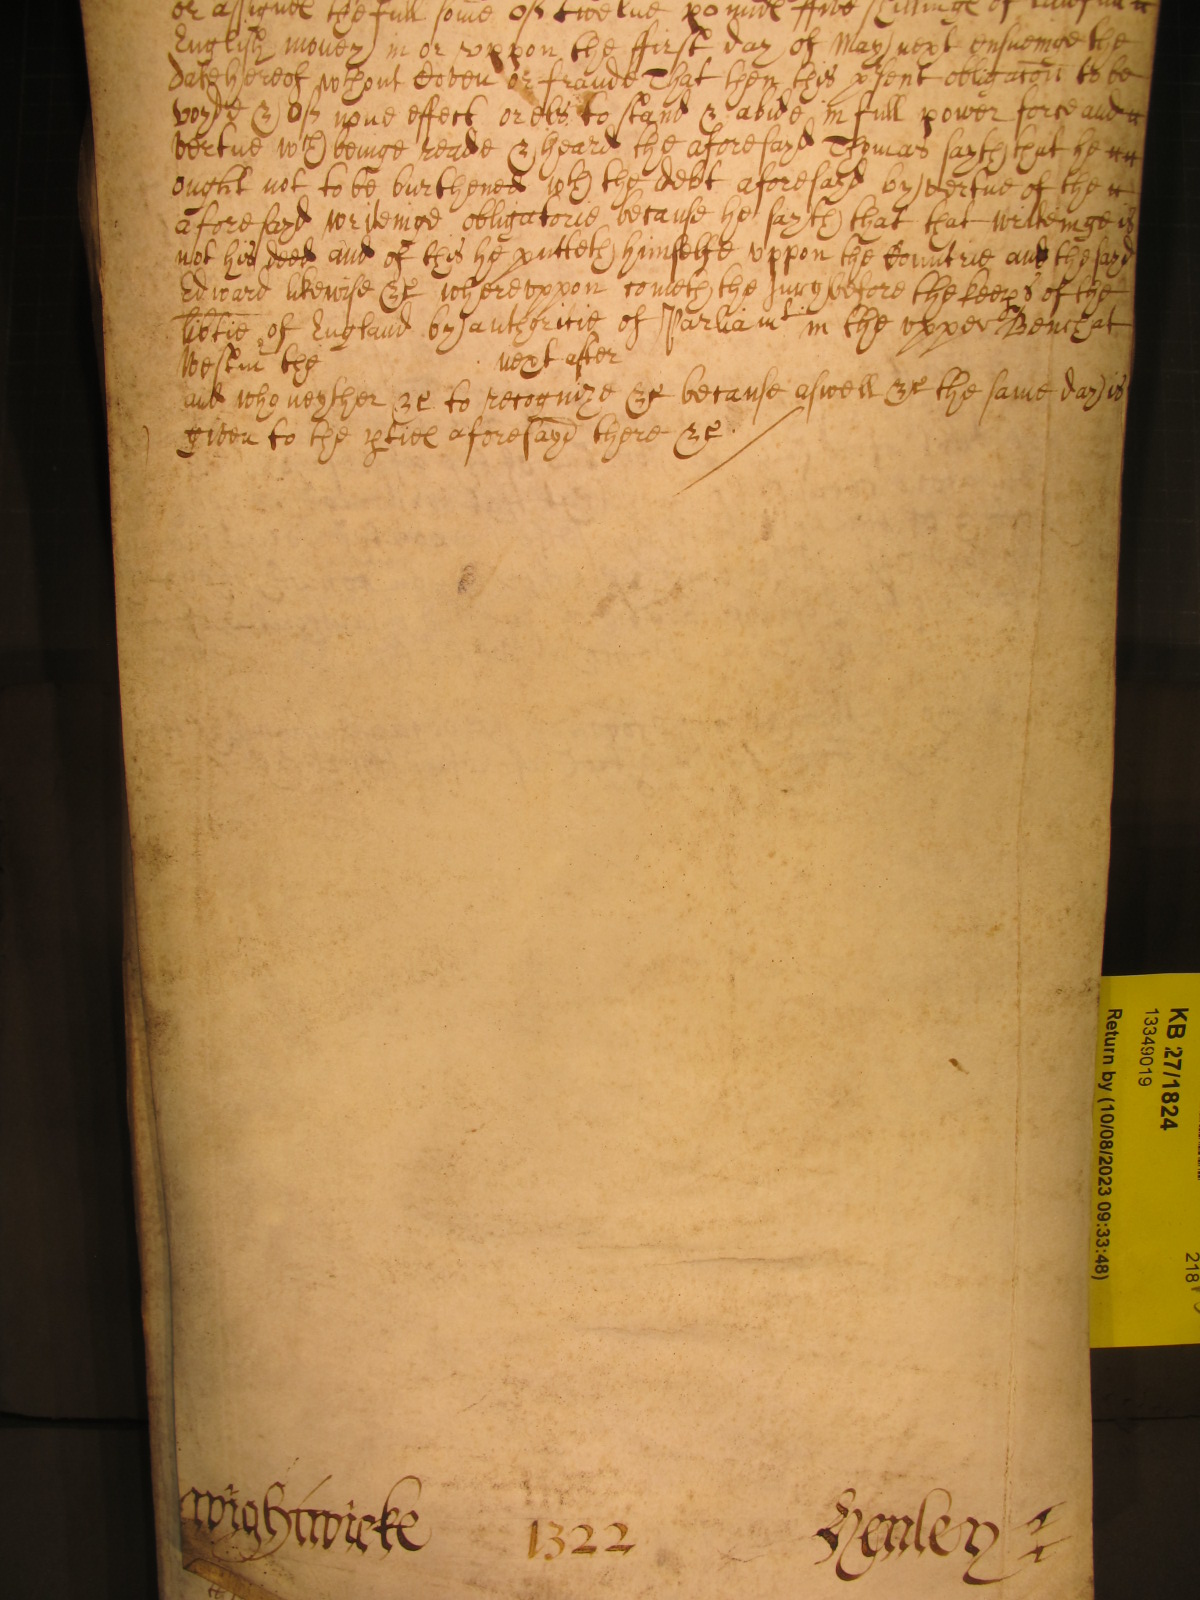 or assignes the full some of twelve poundes ffive shillinges of lawfull
English money in or vppon the ffirst day of May next ensueinge the
date hereof wthout Coven or fraude That then this p'sent obligacon to be
voyde & of none effect or els to stand & abide in full power force and
vertue wch beinge reade & heard the aforesayd Thomas sayth that he
ought not to be burthened wth the debt aforesayd by vertue of the
aforesayd writeinge obligatorie because he sayth that that writeinge is
not his deed and of this he putteth himselfe vppon the Countrie and the sayd
Edward likewise &c wherevppon cometh the Jury before the keeps of the
lib'tie of England by authoritie of Parliamt in the vpper Bench at
Westm the next after
and who neyther &c to recognize &c because aswell &c the same day is
given to the p'ties aforesayd there &c
Wightwicke 1322 Henley
KB 27/1824
13349019
Return by (10/08/2023 09:33:48)
218